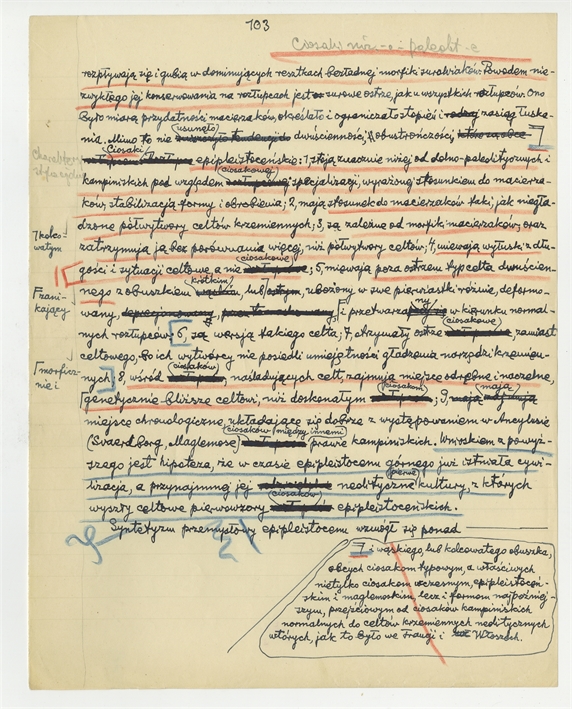 103
Ciosaki
rozpływają się i gubią w dominujących resztkach beztadnej morfiki surowiaków. Powodem nie-
zwykłego jej konserwowania na roztupcach jest surowe ostrze, jak u wszystkich roztupców. Ono
było miarą przydatności macierzaków, określało i ograniczało stopień i zasiąg łuska-
nia. Mimo to nie usunęto dwuścienność, obustronczości
Ciosaki epipleistoceńskie: 1, stoją znacznie niżej od dolno-paleolitycznych i
kampinijskich pod względem ciosakowej specjalizacji, wyrażonej stosunkiem do macierza-
ków, stabilizacją formy i obrobienia; 2, mają stosunek do macierzaków taki, jak niegła-
dzone półwytwory celtów krzemiennych; 3, są zależne od morfiki macierzaków, oraz
zatrzymują ją bez porównania więcej, niż półwytwory celtów; 4, miewają wyłuski z dłu-
gości i sytuacji celtowe, a nie ciosakowe; 5, miewają poza ostrzem typ celta dwuścien-
nego z obuszkiem krótkim, lub ułożony w swe pierwiastki różnie, deformo-
wany, i przetwarzany w kierunku normal-
nych roztupców; 6, są wersją takiego celta; 7, otrzymały ostrze ciosakowe, zamiast
celtowego, bo ich wytwórcy nie posiedli umiejętności gładzenia narzędzi krzemien-
nych; 8, wśród ciosaków, naśladujących celt, zajmują miejsce odrębne i naczelne,
genetycznie bliższe celtowi, niż doskonałym ciosakom; 9, mają
miejsce chronologiczne, układające się dobrze z występowaniem w Ancylusie
(Svaerdborg, Maglemose) ciosaków między innemi prawie kampinijskich. Wnioskiem z powyż-
szego jest hipoteza, że w czasie epipleistocenu górnego już istniała cywi-
lizacja, a przynajmniej jej pierwsze neolityczne kultury, z których
wyszły celtowe pierwowzory ciosaków epipleistoceńskich.
Syntetyzm przemysłowy epipleistocenu wzniósł się ponad
i wąskiego, lub kolcowatego obuszka,
obcych ciosakom typowym, a właściwych
nietylko ciosakom wczesnym, epipleistoceń-
skim i maglemoskim, lecz i formom najpóźniej-
szym, przejściowym od ciosaków kampinijskich
normalnych do celtów krzemiennych neolitycznych
wtórych, jak to było we Francji i Włoszech.
7 kolco-
watym
zani-
kający
morficz-
nie i